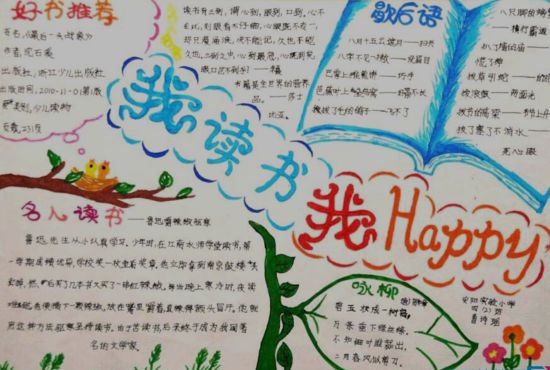 好书推荐
书名:《最后一头战象》
作者:沈石溪
出版社:浙江少儿出版社
出版时间:2010-11-01第1版
少儿读物
读书有三到,谓心到,眼到,口到。心不
在此,则眼看不仔细,心眼既不专一,
却只漫浪诵读,决不能记,久也不能
久也。三到之中,心到最急,心既到矣,
眼口岂不到乎?——朱熹
书籍是全世界的营养
品。——莎士
比亚
歇后语
八月十五云遮月——扫兴
芭蕉叶上垒鸟窝——
拔了毛的鸽子——飞不了
八只脚的
拔了塞子不淌水——
死心眼
我读书
我Happy
名人读书
——鲁迅嚼辣椒驱寒
鲁迅先生从小认真学习。少年时,在江南水师学堂读书,第
一学期成绩优异,学校奖一枚金质奖章。他立即拿到南京鼓楼街头
卖掉,然后买了几本书,又买了一串红辣椒。每当晚上寒冷时,夜读
难耐,他便摘下一颗辣椒,放在嘴里嚼着,直辣得额头冒汗。他就
用这种办法驱寒坚持读书。由于苦读书,后来终于成为我国著
名的文学家。
咏柳
碧玉妆成一树高,
万条垂下绿丝绦。
不知细叶谁裁出,
二月春风似剪刀。
安阳实验小学
四(2)班
曹诗瑶